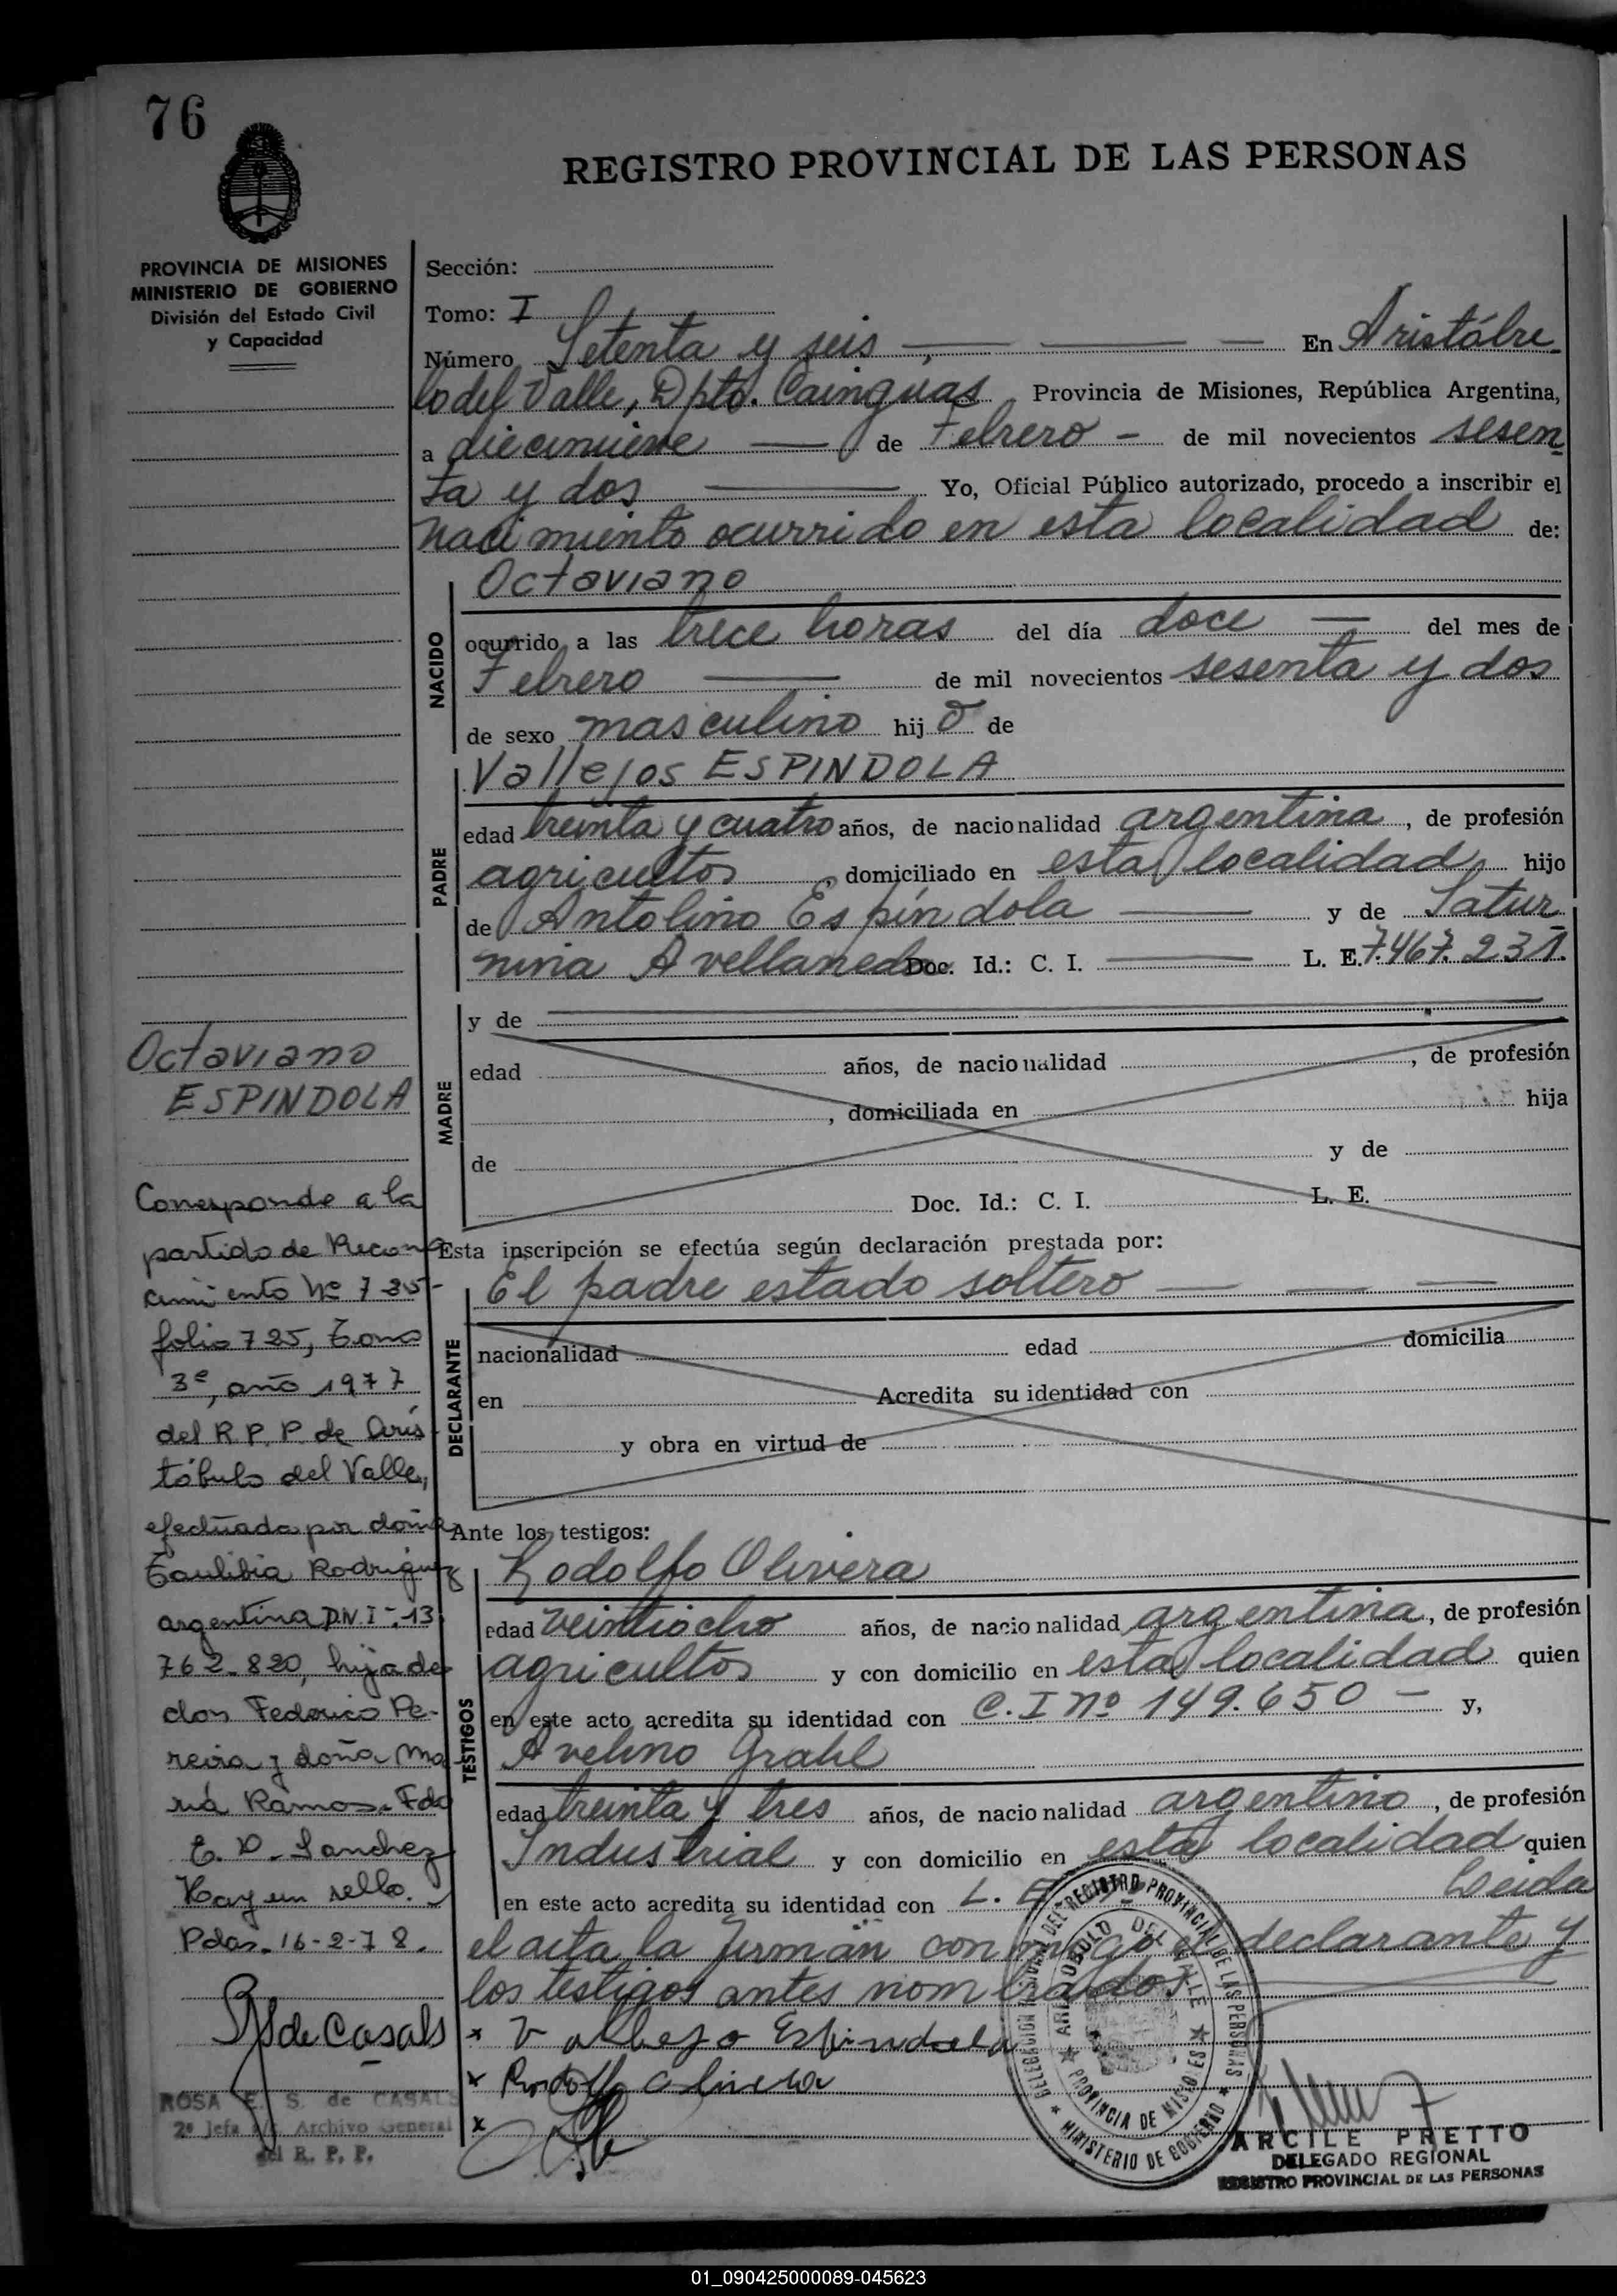 76
REGISTRO PROVINCIAL DE LAS PERSONAS
PROVINCIA DE MISIONES
MINISTERIO DE GOBIERNO
División del Estado Civil
y Capacidad
Sección:
Tomo: I
Número Setenta y seis — En Aristóbu-
lo del Valle, Dpto. Cainguas Provincia de Misiones, República Argentina,
a diecinueve — de Febrero - de mil novecientos sesen
ta y dos — Yo, Oficial Público autorizado, procedo a inscribir el
nacimiento ocurrido en esta localidad de:
NACIDO
Octaviano
ocurrido a las trece horas del día doce — del mes de
Febrero — de mil novecientos sesenta y dos
de sexo masculino hijo de
PADRE
Vallejos ESPINDOLA
edad treinta y cuatro años, de nacionalidad argentina, de profesión
agricultor, domiciliado en esta localidad hijo
de Antolino Espíndola — y de Satur
nina Avellaneda Doc. Id.: C. I. — L. E. 7.467.231.
MADRE
y de
edad años, de nacionalidad , de profesión
, domiciliada en hija
de y de
Doc. Id.: C. I. L. E.
Esta inscripción se efectúa según declaración prestada por:
DECLARANTE
El padre estado soltero — — —
nacionalidad edad domicilia
en Acredita su identidad con
y obra en virtud de
Ante los testigos:
TESTIGOS
Rodolfo Olivera
edad veintiocho años, de nacionalidad argentina, de profesión
agricultor y con domicilio en esta localidad quien
en este acto acredita su identidad con C. I nº 149.650 — y,
Avelino Grahl
edad treinta y tres años, de nacionalidad argentino, de profesión
Industrial y con domicilio en esta localidad quien
en este acto acredita su identidad con L. E Leida
el acta la firman conmigo el declarante y
los testigos antes nombrados
x Vallejo Espindola
x Rodolfo Olivera
x
Octaviano
ESPINDOLA
Corresponde a la
partida de Recono
cimiento Nº 725-
folio 725, Tomo
3º, año 1977
del R.P.P. de Aris
tóbulo del Valle,
efectuada por doña
Eaulibia Rodriguez
argentina D.N.I-.13.
762.820, hija de
don Federico Pe-
reira y doña Ma
ria Ramos. Fdo
E. D. Sanchez
Hay un sello.
Pdas. 16-2-78.
de Casals
ROSA E. S. de CASALS
2º Jefa Archivo General
del R. P. P.
DELEGACION REGIONAL DEL REGISTRO PROVINCIAL DE LAS PERSONAS
MINISTERIO DE GOBIERNO
ARISTOBULO DEL VALLE
PROVINCIA DE MISIONES
ARCILE PRETTO
DELEGADO REGIONAL
REGISTRO PROVINCIAL DE LAS PERSONAS
01_090425000089-045623